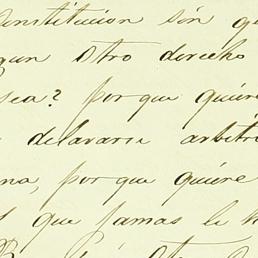 onstitucion sin q
gun otro derecho
sea? porque quiere
delavarse arbitr
na, porque quiere
s que jamas le h